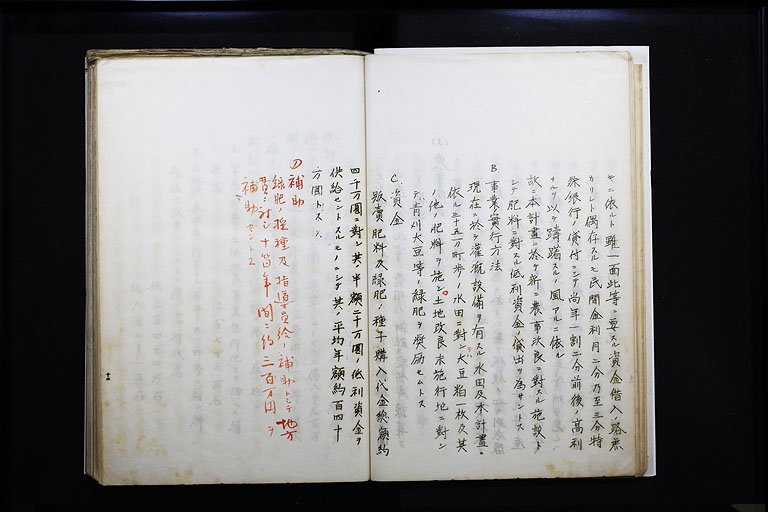 ヤニ依ルト雖一面此等ニ要スル資金借入ノ路無
カリシト偶存スルモ民間金利月二分乃至三分特
殊銀行ノ貸付ニシテ尚年一割二分前後ノ高利
ナルヲ以テ躊躇スルノ風アルニ依ル
故ニ本計畫ニ於テ新ニ農事改良ニ對スル施設ト
シテ肥料ニ對スル低利資金ノ貸出ヲ為サントス
B. 事業實行方法
現在ニ於テ灌漑設備ヲ有スル水田及本計畫ニ
依ル三十五万町歩ノ水田ニ對シ大豆粕一枚及其
ノ他ノ肥料ヲ施シ土地改良未施行地ニ對シ
テ青刈大豆等ノ緑肥ヲ奨励セムトス
C. 資金
販賣肥料及緑肥ノ種子購入代金総額約
四千万圓ニ對シ其ノ半額二千万圓ノ低利資金ヲ
供給セントスルモノニシテ其ノ平均年額約百四十
万圓トス
D 補助
緑肥ノ採種及指導員給ノ補助トシテ地方
費ニ対シ十箇年間ニ約三百万円ヲ
補助セントス